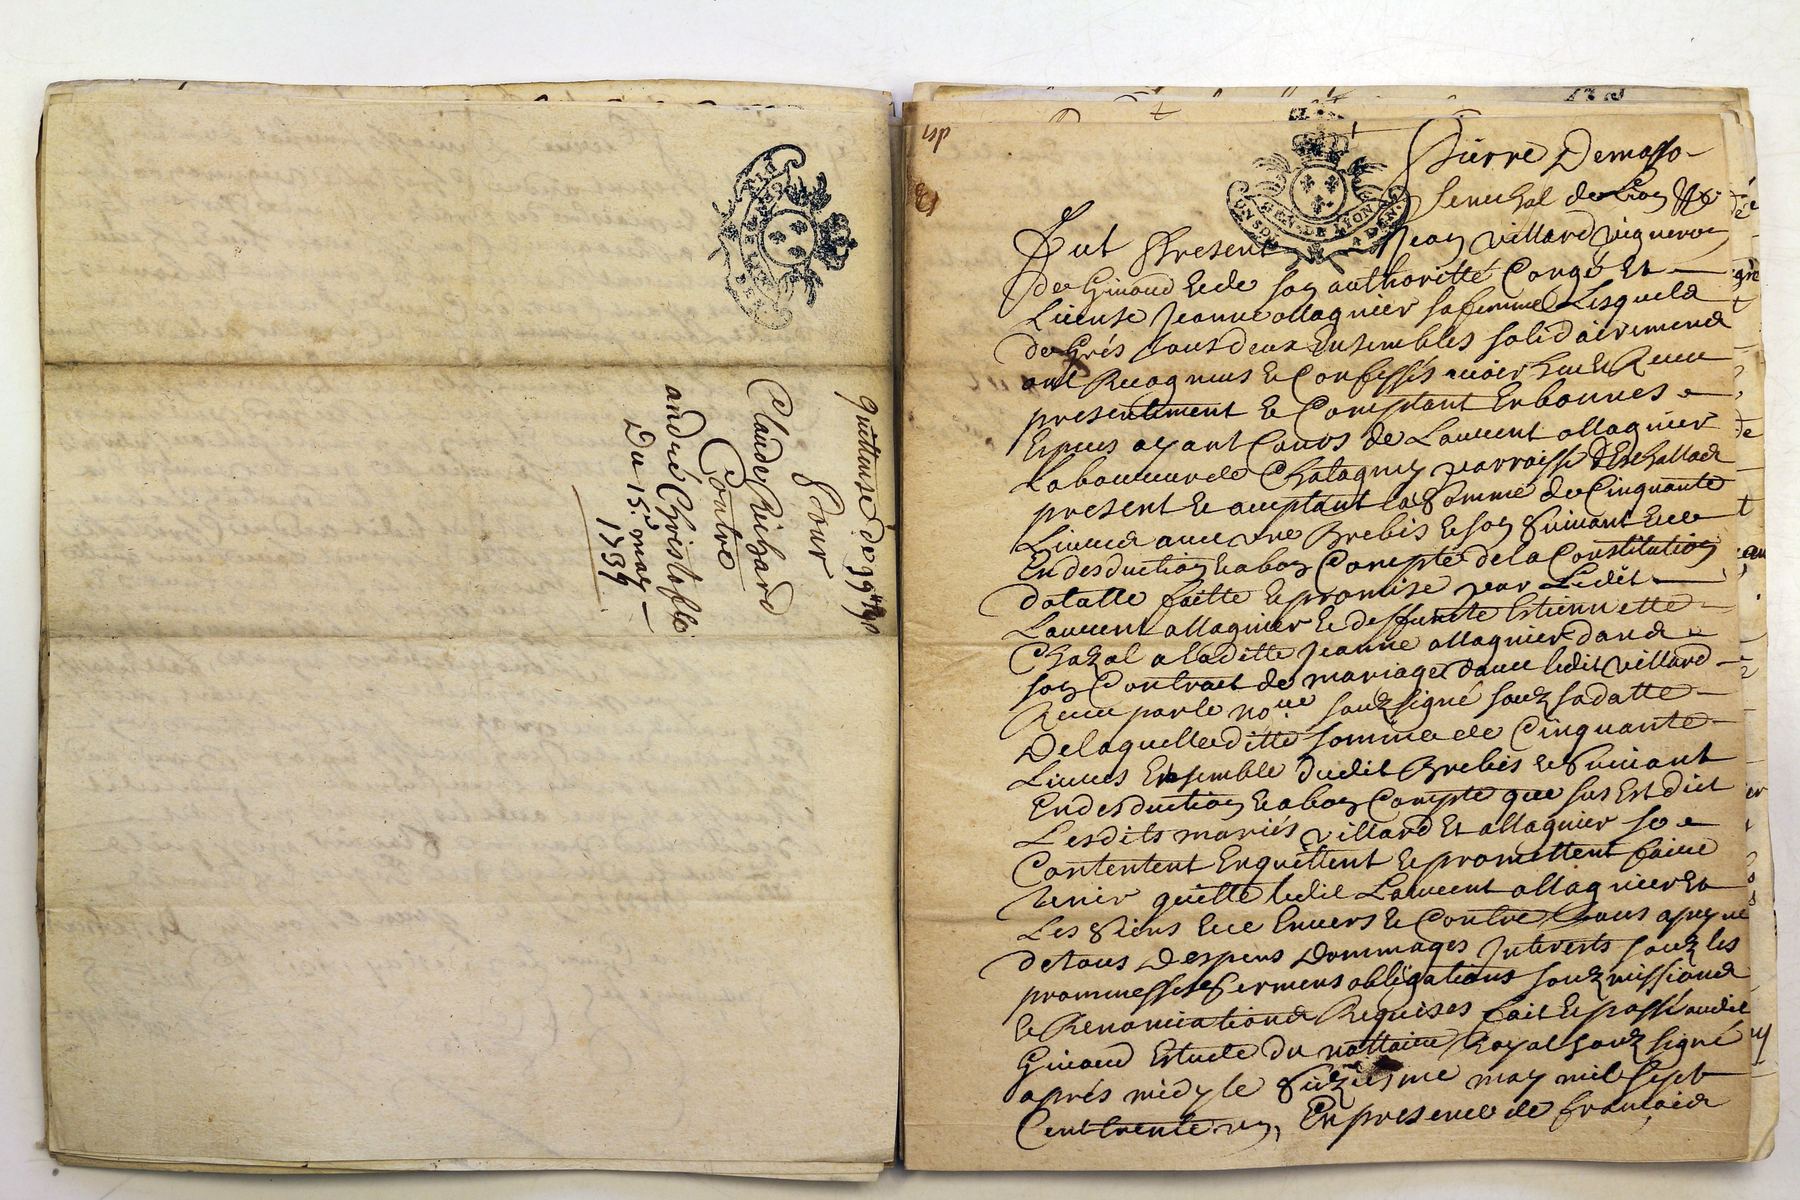 quittanse de 99
Pour
Claude Richard
Contre
andré Christofle
Du 15e may
1734
GEN. DE LYON
Pierre Demasso
Senechal de Lion
GEN. DE LYON
UN SOL
4 DEN.
fut Present Jean Villard Vigneron
de Givord & de son authoritté Congé Et
License Jeanne Allagnier sa femme Lesquels
de Grés tous deux Ensembles solidairement
ont Recognus & Confessés avoir heu & Receu
presentement & Comptant En bonnes
Especes ayant Cours de Laurent Allagnier
Laboureur de Chatagny parroisse
present & acceptant la Somme de Cinquante
Livres avec une Brebis & son Suivant
En desduction & a bon Compte de la Constitution
dotalle faitte & promise par Ledit
Laurent Allagnier & deffuncte Estiennette
Chazal a laditte Jeanne Allagnier dans
son Contract de mariage d'avec ledit Villard
Receu par le nore souz signé souz sa datte
De laquelle ditte somme de Cinquante
Livres Ensemble dudit Brebis & Suivant
En desduction & a bon Compte que sus Est dict
Lesdits mariés Villard Et Allagnier se
Contentent En quittent & promettent faire
tenir quitte ledit Laurent Allagnier Et
Les Siens Envers & Contre tous a peyne
de tous Despens Dommages Interests souz les
promesses Sermens obligations souzmissions
& Renonciations Requises fait & passé audit
Givord Estude du nottaire Royal souz signé
aprés midy le may mil sept
Cent trente En presence de françois